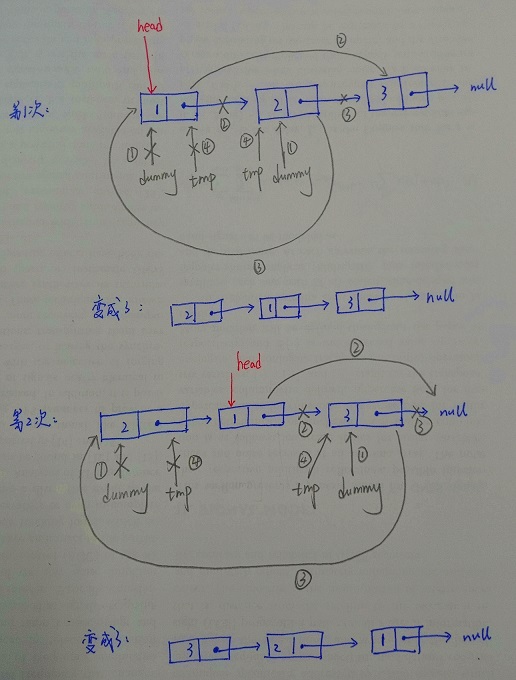 head
②
第1次: 1 2 3 null
② ③
① ④ ④ ①
dummy tmp tmp dummy
③
变成了: 2 1 3 null
head
②
第2次: 2 1 3 null
② ③
① ④ ④ ①
dummy tmp tmp dummy
③
变成了: 3 2 1 null